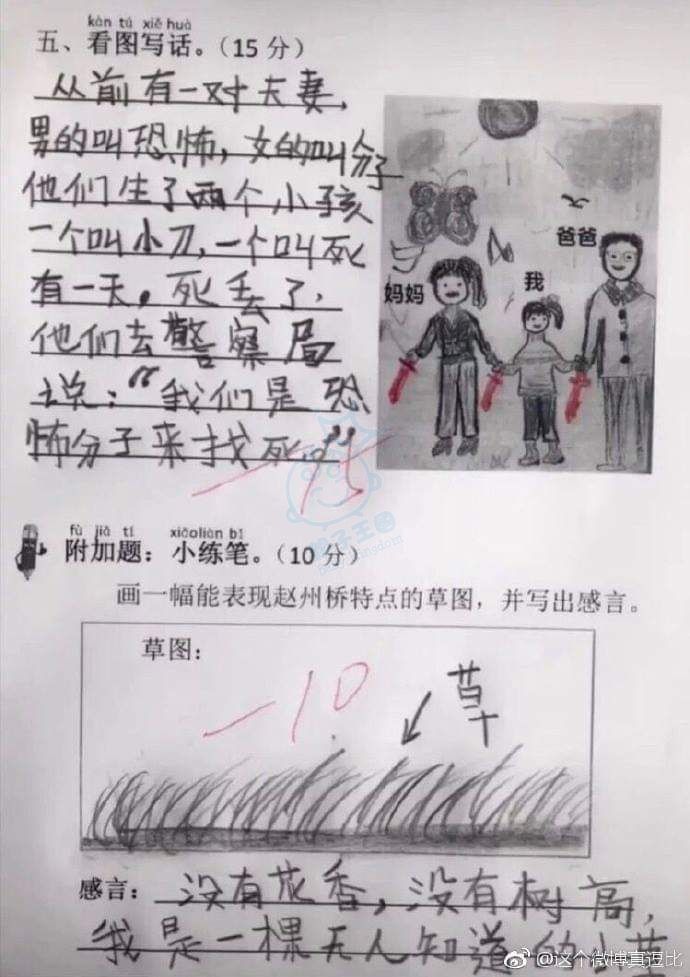 kàn tú xiě huà
五、看图写话。(15 分)
从前有一对夫妻,
男的叫恐怖,女的叫分子
他们生了两个小孩
一个叫小刀,一个叫死
有一天,死丢了,
他们去警察局
说:“我们是恐
怖分子来找死。”
妈妈
我
爸爸
-15
fù jiā tí xiǎoliàn bǐ
附加题:小练笔。(10 分)
画一幅能表现赵州桥特点的草图,并写出感言。
草图:
-10
草
感言:没有花香,没有树高,
我是一棵无人知道的小草
@这个微博真逗比